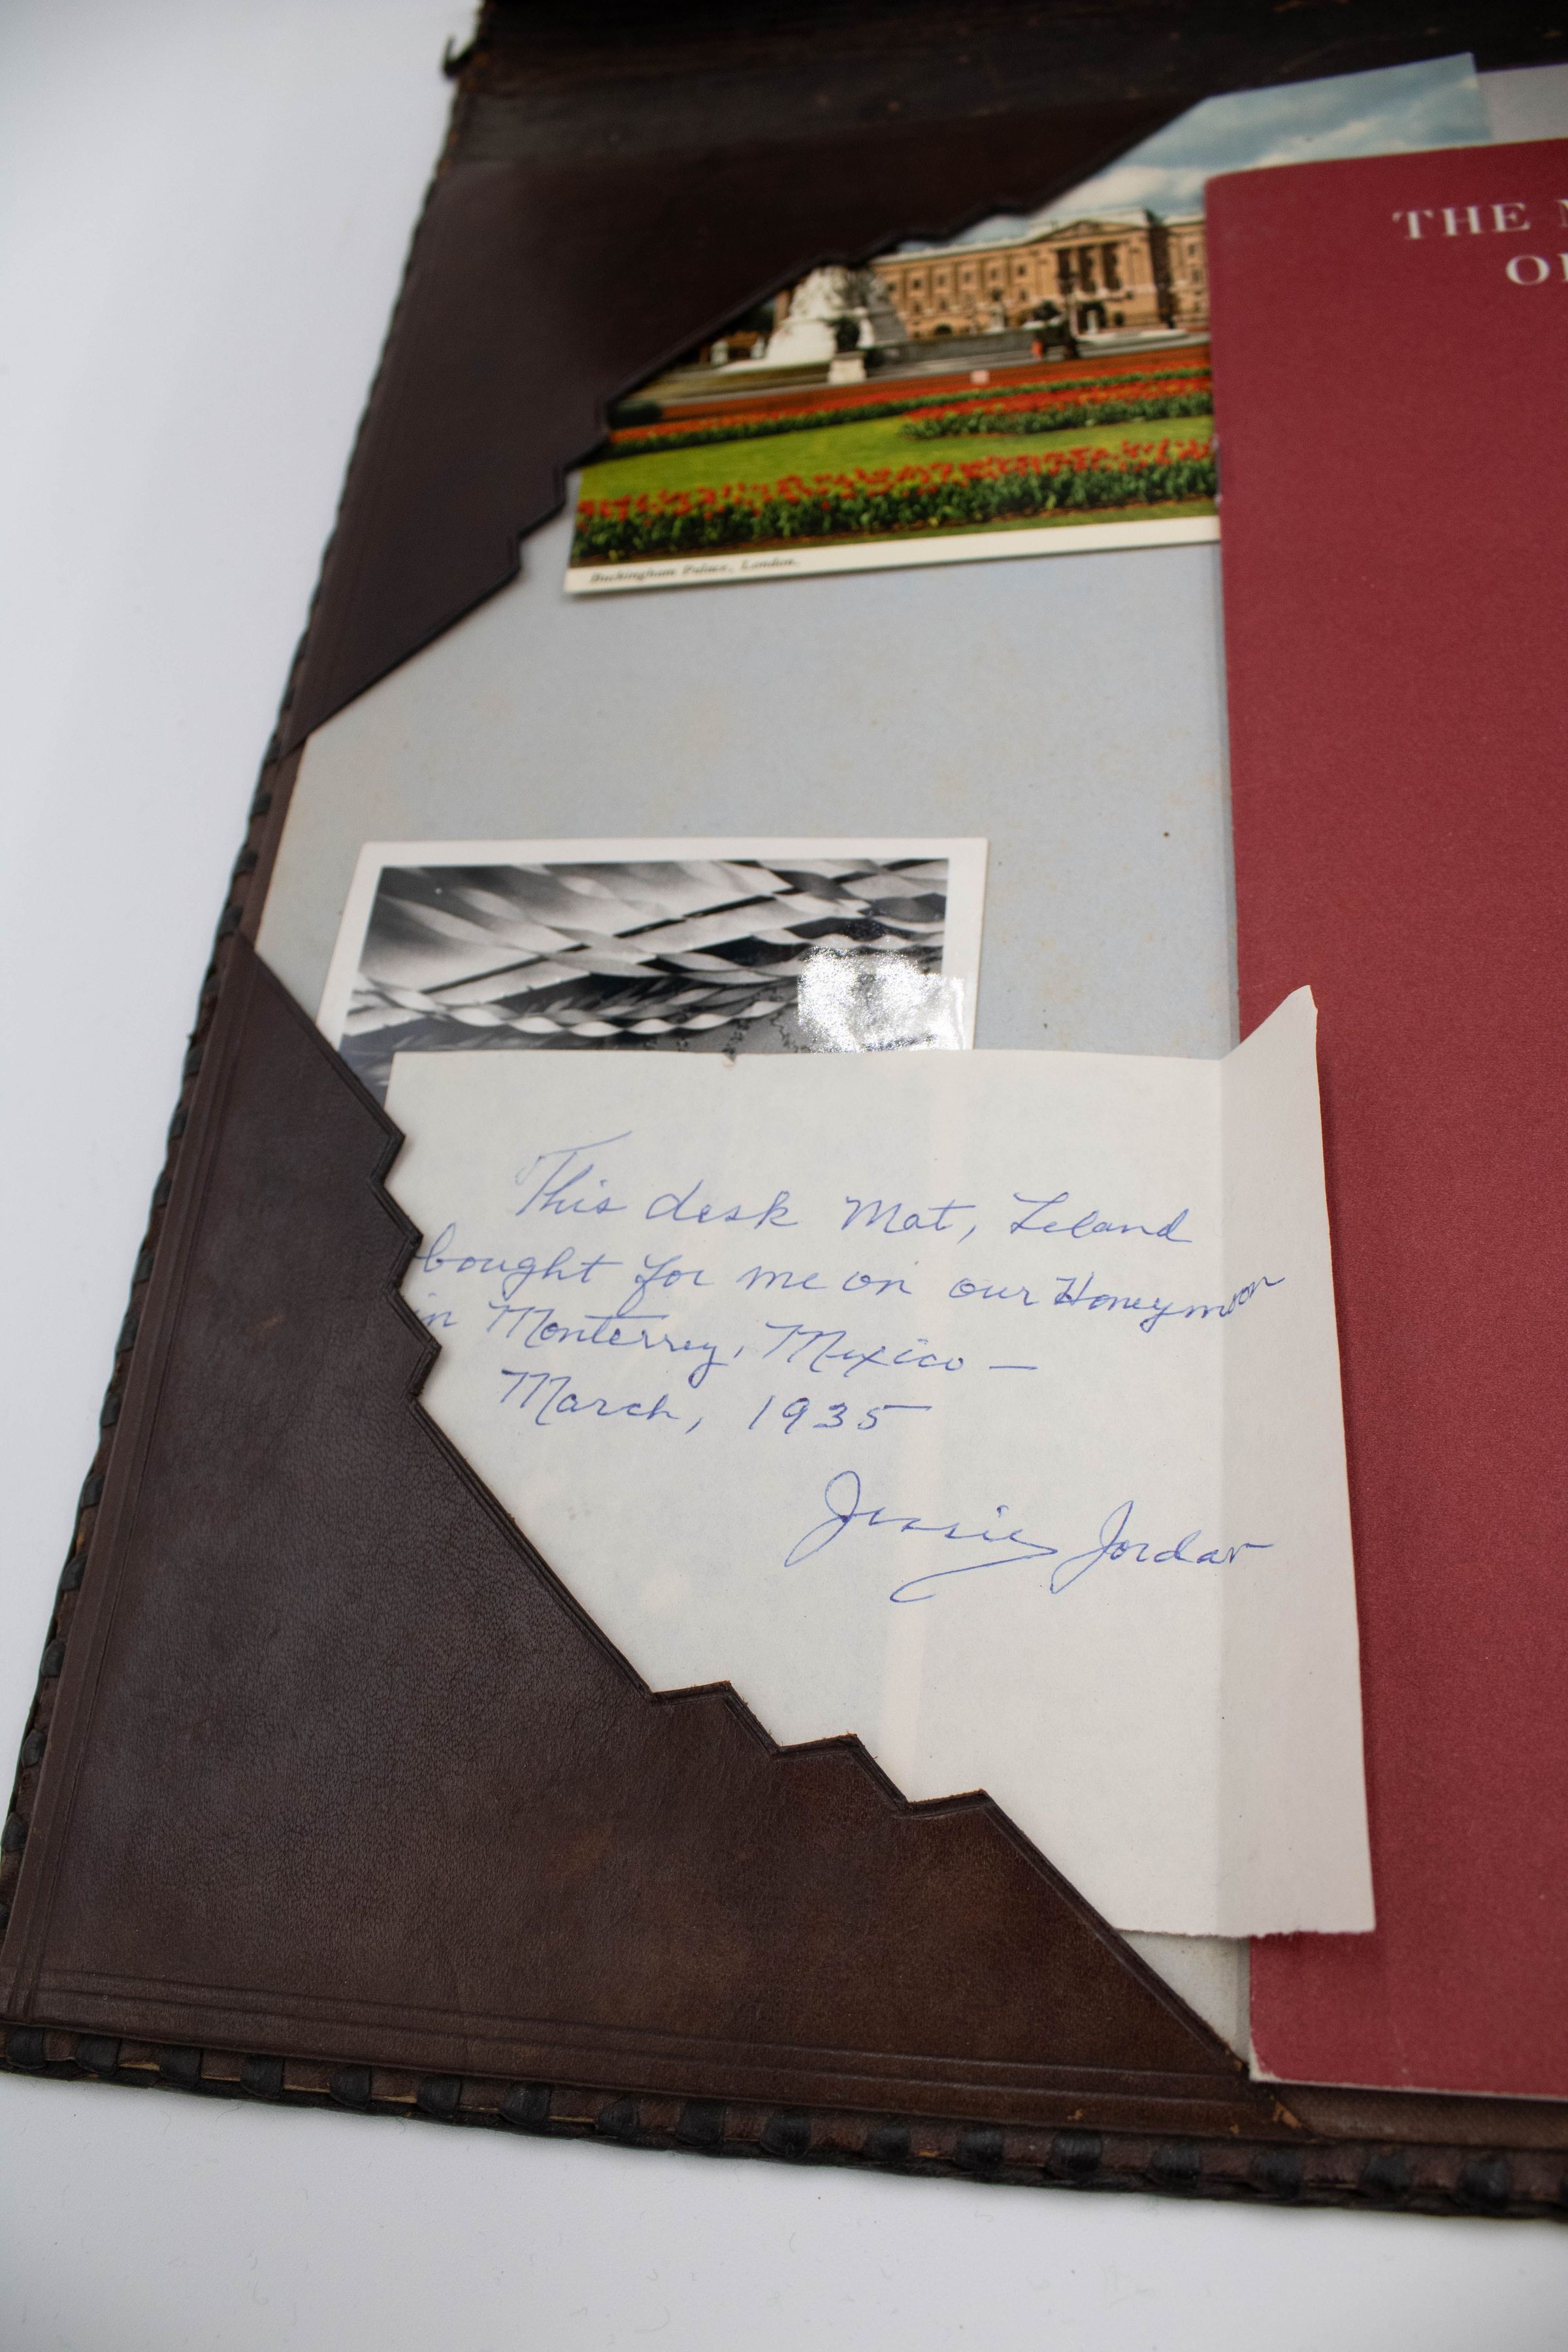 THE
Buckingham Palace, London.
This desk Mat, Leland
bought for me on our Honeymoon
in Monterrey, Mexico —
March, 1935
Jessie Jordan